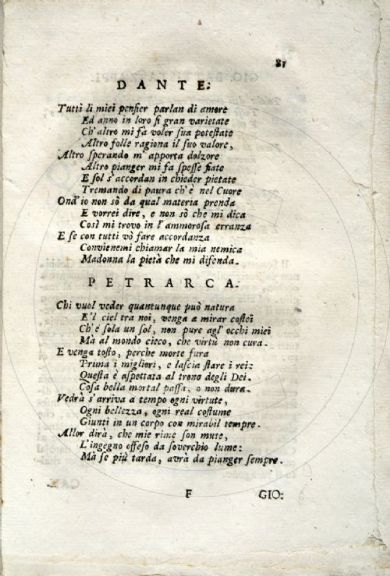 81
DANTE.
Tutti li miei pensier parlan di amore
Ed anno in loro sì gran varietate
Ch'altro mi fa voler sua potestate
Altro folle ragiona il suo valore,
Altro sperando m'apporta dolzore
Altro pianger mi fa spesse fiate
E sol s'accordan in chieder pietate
Tremando di paura ch'è nel Cuore
Ond'io non sò da qual materia prenda
E vorrei dire, e non sò che mi dica
Così mi trovo in l'ammorosa erranza
E se con tutti vò fare accordanza
Convienemi chiamar la mia nemica
Madonna la pietà che mi difenda.
PETRARCA.
Chi vuol veder quantunque può natura
E'l ciel tra noi, venga a mirar costei
Ch'è sola un sol, non pure agl'occhi miei
Mà al mondo cieco, che virtù non cura.
E venga tosto, perche morte fura
Prima i migliori, e lascia stare i rei:
Questa è aspettata al trono degli Dei.
Cosa bella mortal passa, o non dura.
Vedrà s'arriva a tempo ogni virtute,
Ogni bellezza, ogni real costume
Giunti in un corpo con mirabil tempre.
Allor dirà, che mie rime son mute,
L'ingegno offeso da soverchio lume:
Mà se più tarda, avrà da pianger sempre.
F
GIO: